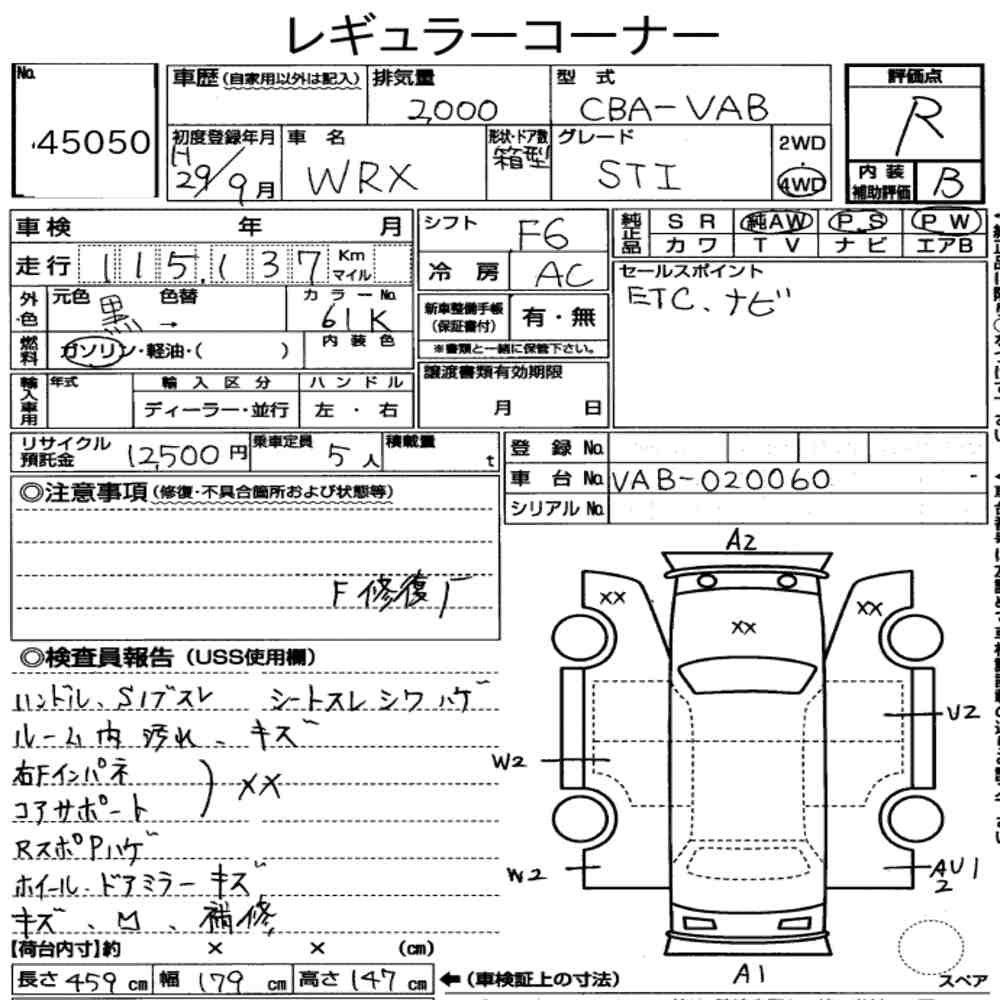 レギュラーコーナー
No. 45050
車歴(自家用以外は記入) 排気量 2,000 型式 CBA-VAB
初度登録年月 H29/9月 車名 WRX 形状・ドア数 箱型 グレード STI 2WD 4WD
評価点 R
内装補助評価 B
車検 年 月
走行 115,137 Km マイル
外色 元色 黒 → 色替 カラーNo. 61K
燃料 ガソリン・軽油・( ) 内装色
輸入車用 年式 輸入区分 ディーラー・並行 ハンドル 左・右
シフト F6
冷房 AC
新車整備手帳(保証書付) 有・無
※書類と一緒に保管下さい。
譲渡書類有効期限 月 日
純正品 SR 純AW PS PW
カワ TV ナビ エアB
セールスポイント
ETC、ナビ
リサイクル預託金 12,500円 乗車定員 5人 積載量 t
登録No.
車台No. VAB-020060 -
シリアルNo.
◎注意事項(修復・不具合箇所および状態等)
F修復歴
◎検査員報告(USS使用欄)
ハンドル、Sノブスレ シートスレシワハゲ
ルーム内汚れ、キズ
右Fインパネ
コアサポート ) XX
RスポPハゲ
ホイール・ドアミラーキズ
キズ、凹、補修
【荷台内寸】約 × × (cm)
長さ 459 cm 幅 179 cm 高さ 147 cm ←(車検証上の寸法)
A2
XX XX
XX
U2
W2
W2
AU1
2
A1
スペア